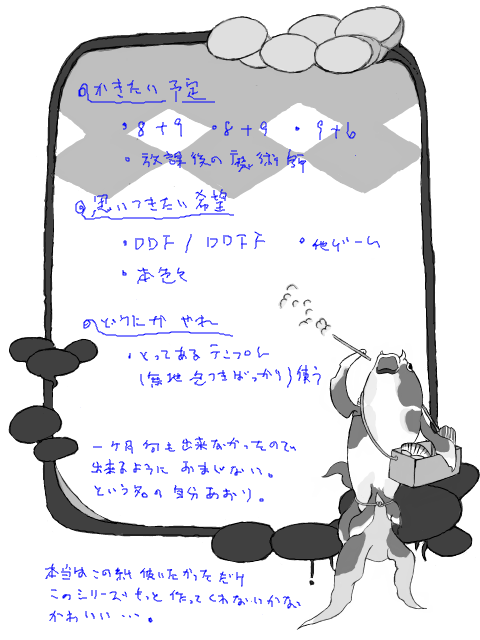 ◎かきたい予定
・8+9 ・8+9 ・9+6
・放課後の魔術師
◎思いつきたい希望
・DDF/DDFF ・他ゲーム
・本色々
◎どうにかやれ
・とってあるテンプレ
(無地色つきばっかり)使う
一ヶ月何も出来なかったので
出来るように おまじない。
という名の自分あおり。
本当はこの紙使いたかっただけ
このシリーズもっと作ってくれないかな
かわいい…。